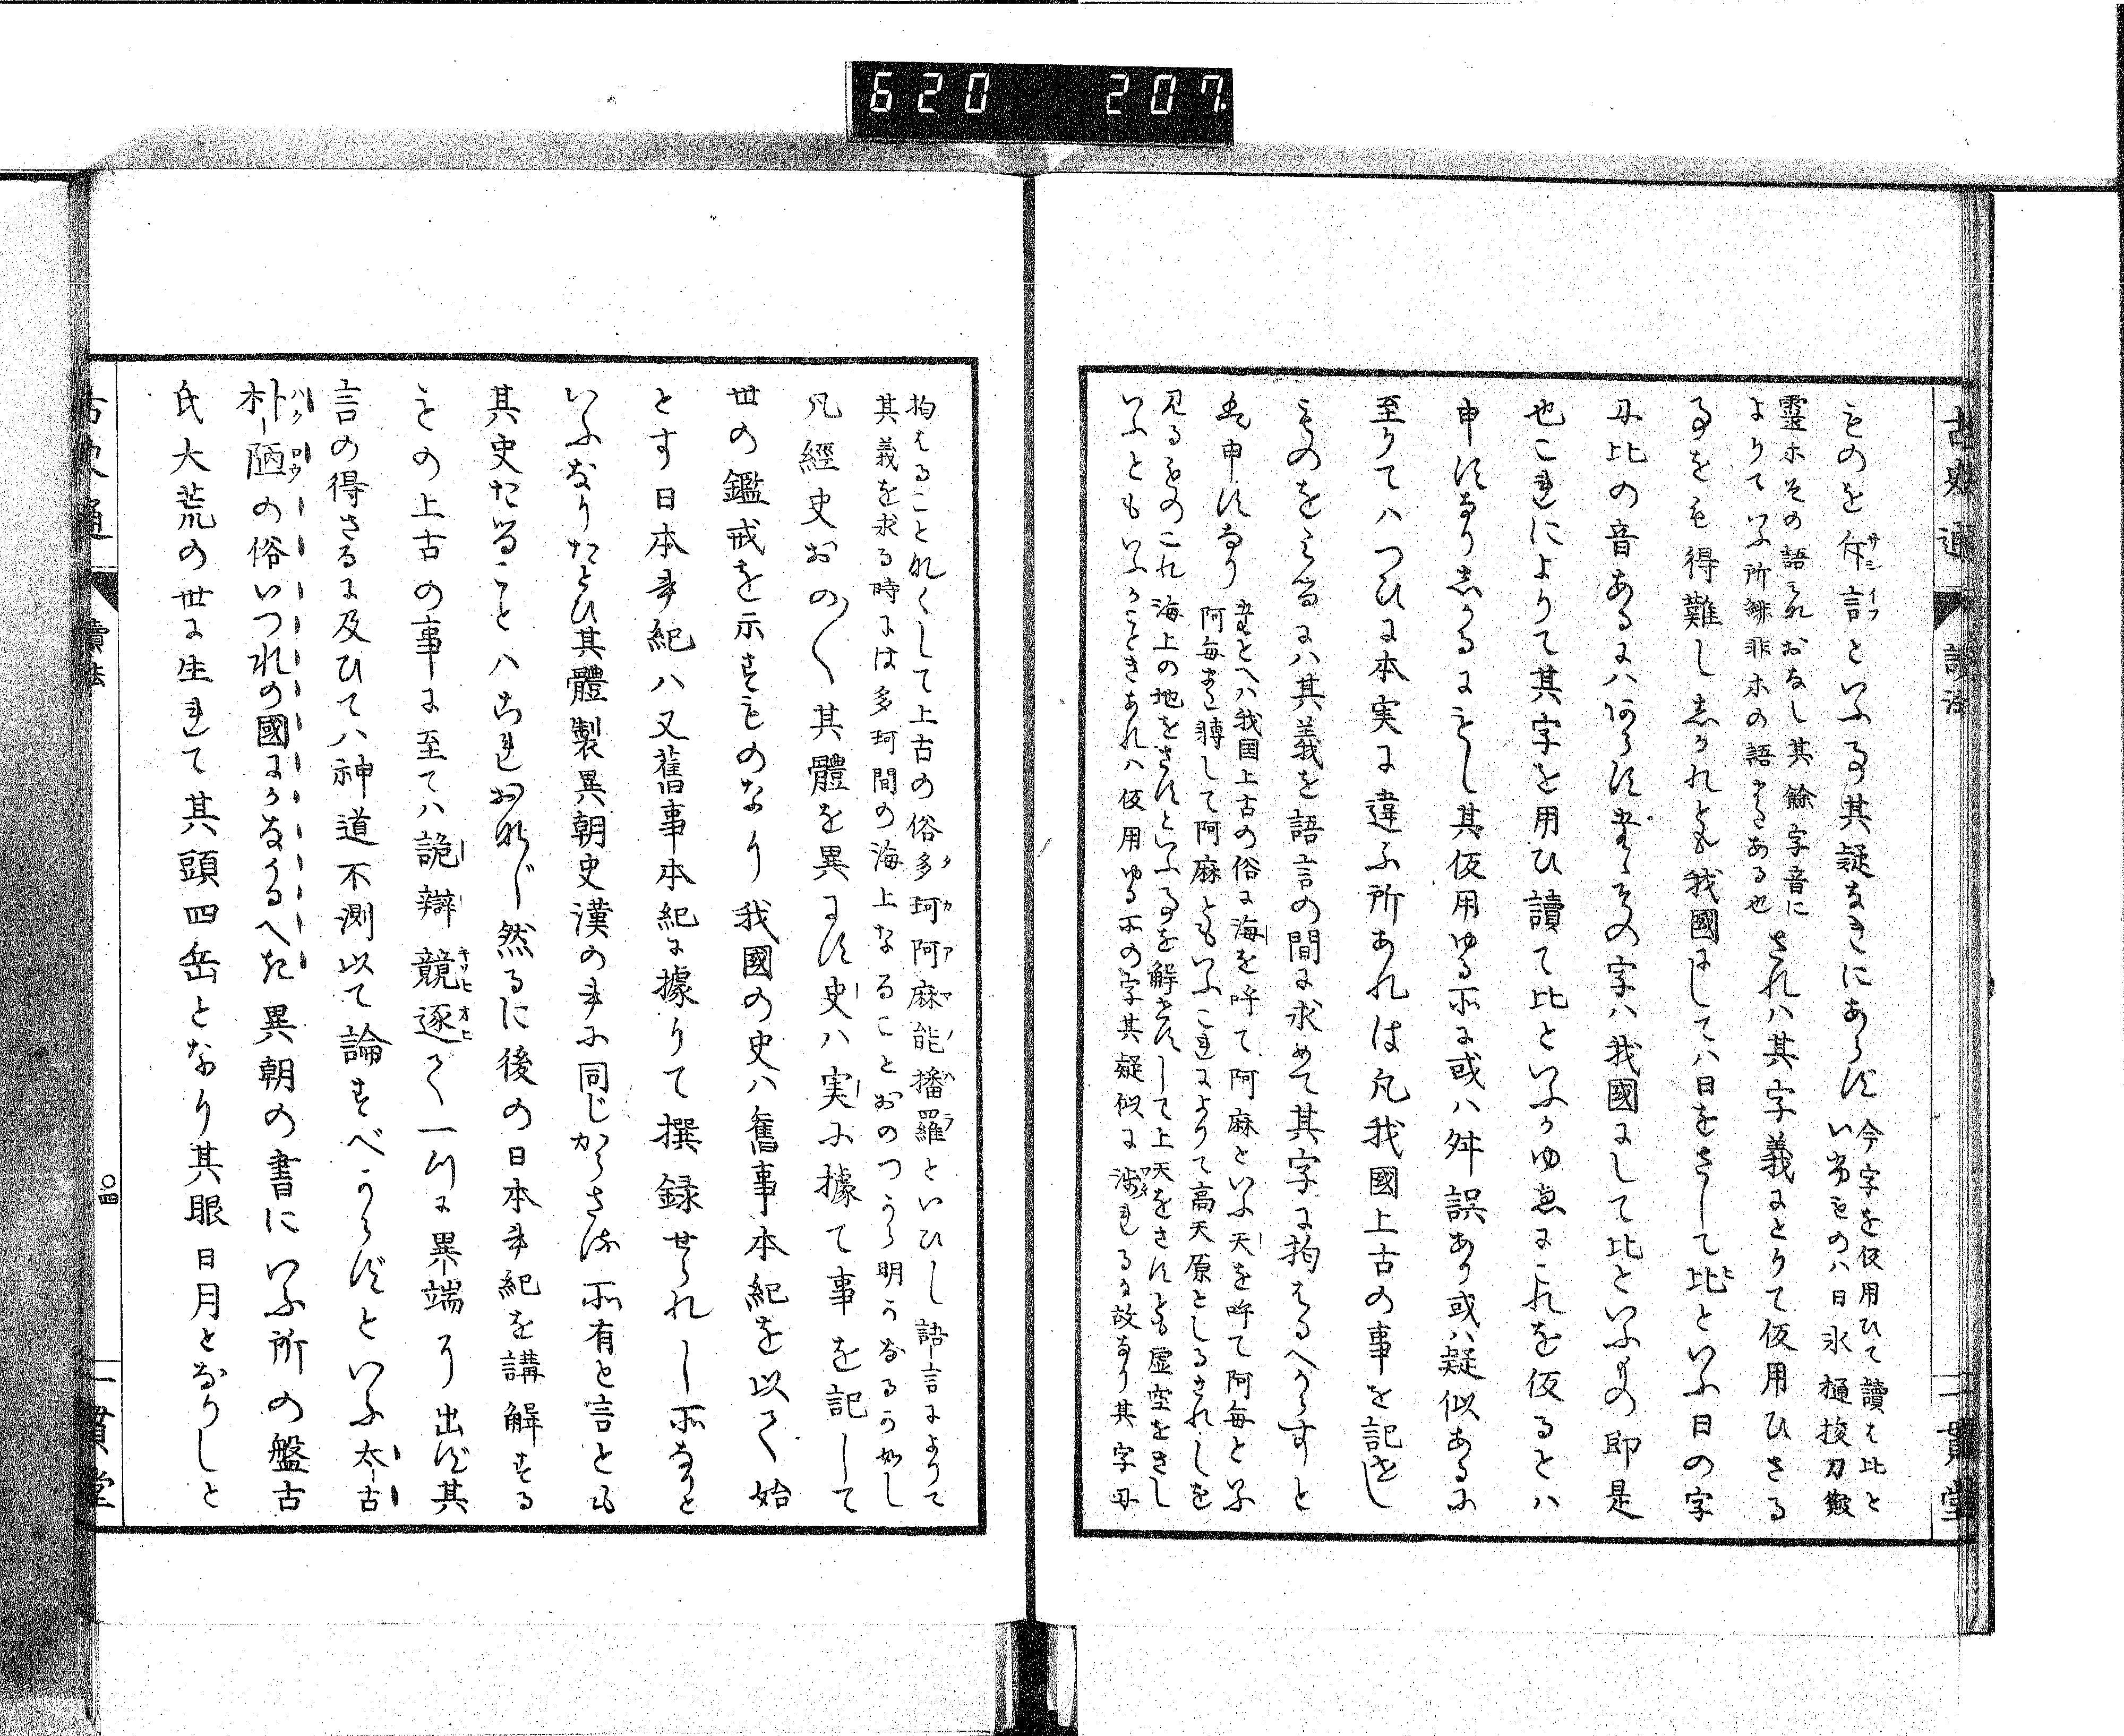 620 207.
古史通 一 讀法
一貫堂
ものを斥言といふ事其疑なきにあらす
今字を仮用ひて讀は比と
いふものハ日氷樋梭刀皺
靈ホその語これおなし其餘字音に
よりていふ所緋非ホの語またある也
されハ其字義によりて仮用ひさる
事をも得難ししかれとも我國にしてハ日をさして比といふ日の字
に比の音あるにハあらすたゝその字ハ我國にして比といふもの即是
也これによりて其字を用ひ讀て比といふかゆゑにこれを仮るとハ
申すなりしかるにもし其仮用ゆる所に或ハ舛誤あり或ハ疑似あるに
至りてハつひに本実に違ふ所あれは凡我國上古の事を記せし
ものをみるにハ其義を語言の間に求めて其字に拘はるへからすと
は申すなり
たとへハ我国上古の俗に海を呼て阿麻といふ天を呼て阿毎といふ
阿毎また轉して阿麻ともいふこれによりて高天原としるされしを
みるものこれ海上の地をさすといふ事を解せすして上天をさすとも虚空をさし
いふともいふかこときあれハ仮用ゆる所の字其疑似に渉れるか故なり其字に
拘はることなくして上古の俗多珂阿麻能播羅といひし語言によりて
其義を求る時には多珂間の海上なることおのつから明かなるか如し
凡經史おの〱其體を異にす史ハ実に據て事を記して
世の鑑戒を示すものなり我國の史ハ舊事本紀を以て始
とす日本書紀ハ又舊事本紀に據りて撰録せられし所なりと
いふなりたとひ其體製異朝史漢の書に同じからさる所有と言とも
其史たることハこれおなじ然るに後の日本書紀を講解する
もの上古の事に至てハ詭辯競逐て一つに異端より出ず其
言の得さるに及ひてハ神道不測以て論すべからずといふ太古
朴陋の俗いつれの國にかなかるへき異朝の書にいふ所の盤古
氏大荒の世に生れて其頭四岳となり其眼日月となりしと
古史通 一 讀法
〇四
一貫堂